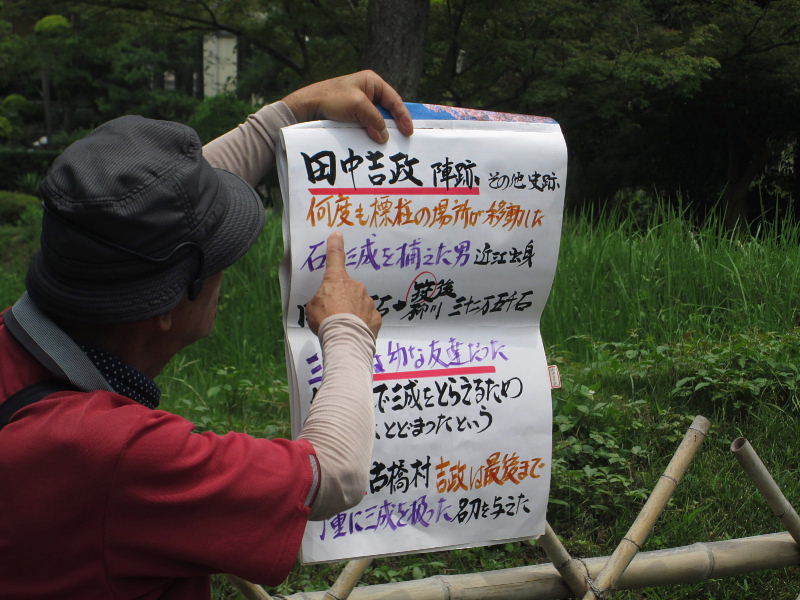 田中吉政 陣跡 その他史跡
何度も標柱の場所が移動した
石 三成を捕えた男 近江出身
石→筑後柳川 三十二万五千石
三 幼な友達だった
で三成をとらえるため
とどまったという
古橋村 吉政は最後まで
丁重に三成を扱った 名刀を与えた